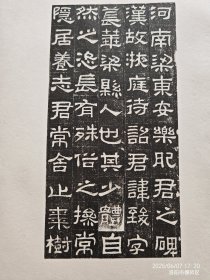 河南梁東安樂肥君之碑
漢故掖庭待詔君諱致字
萇華梁縣人也其少體自
然之恣長有殊俗之操常
隱居養志君常舍止棗樹
2025/06/07 17:20